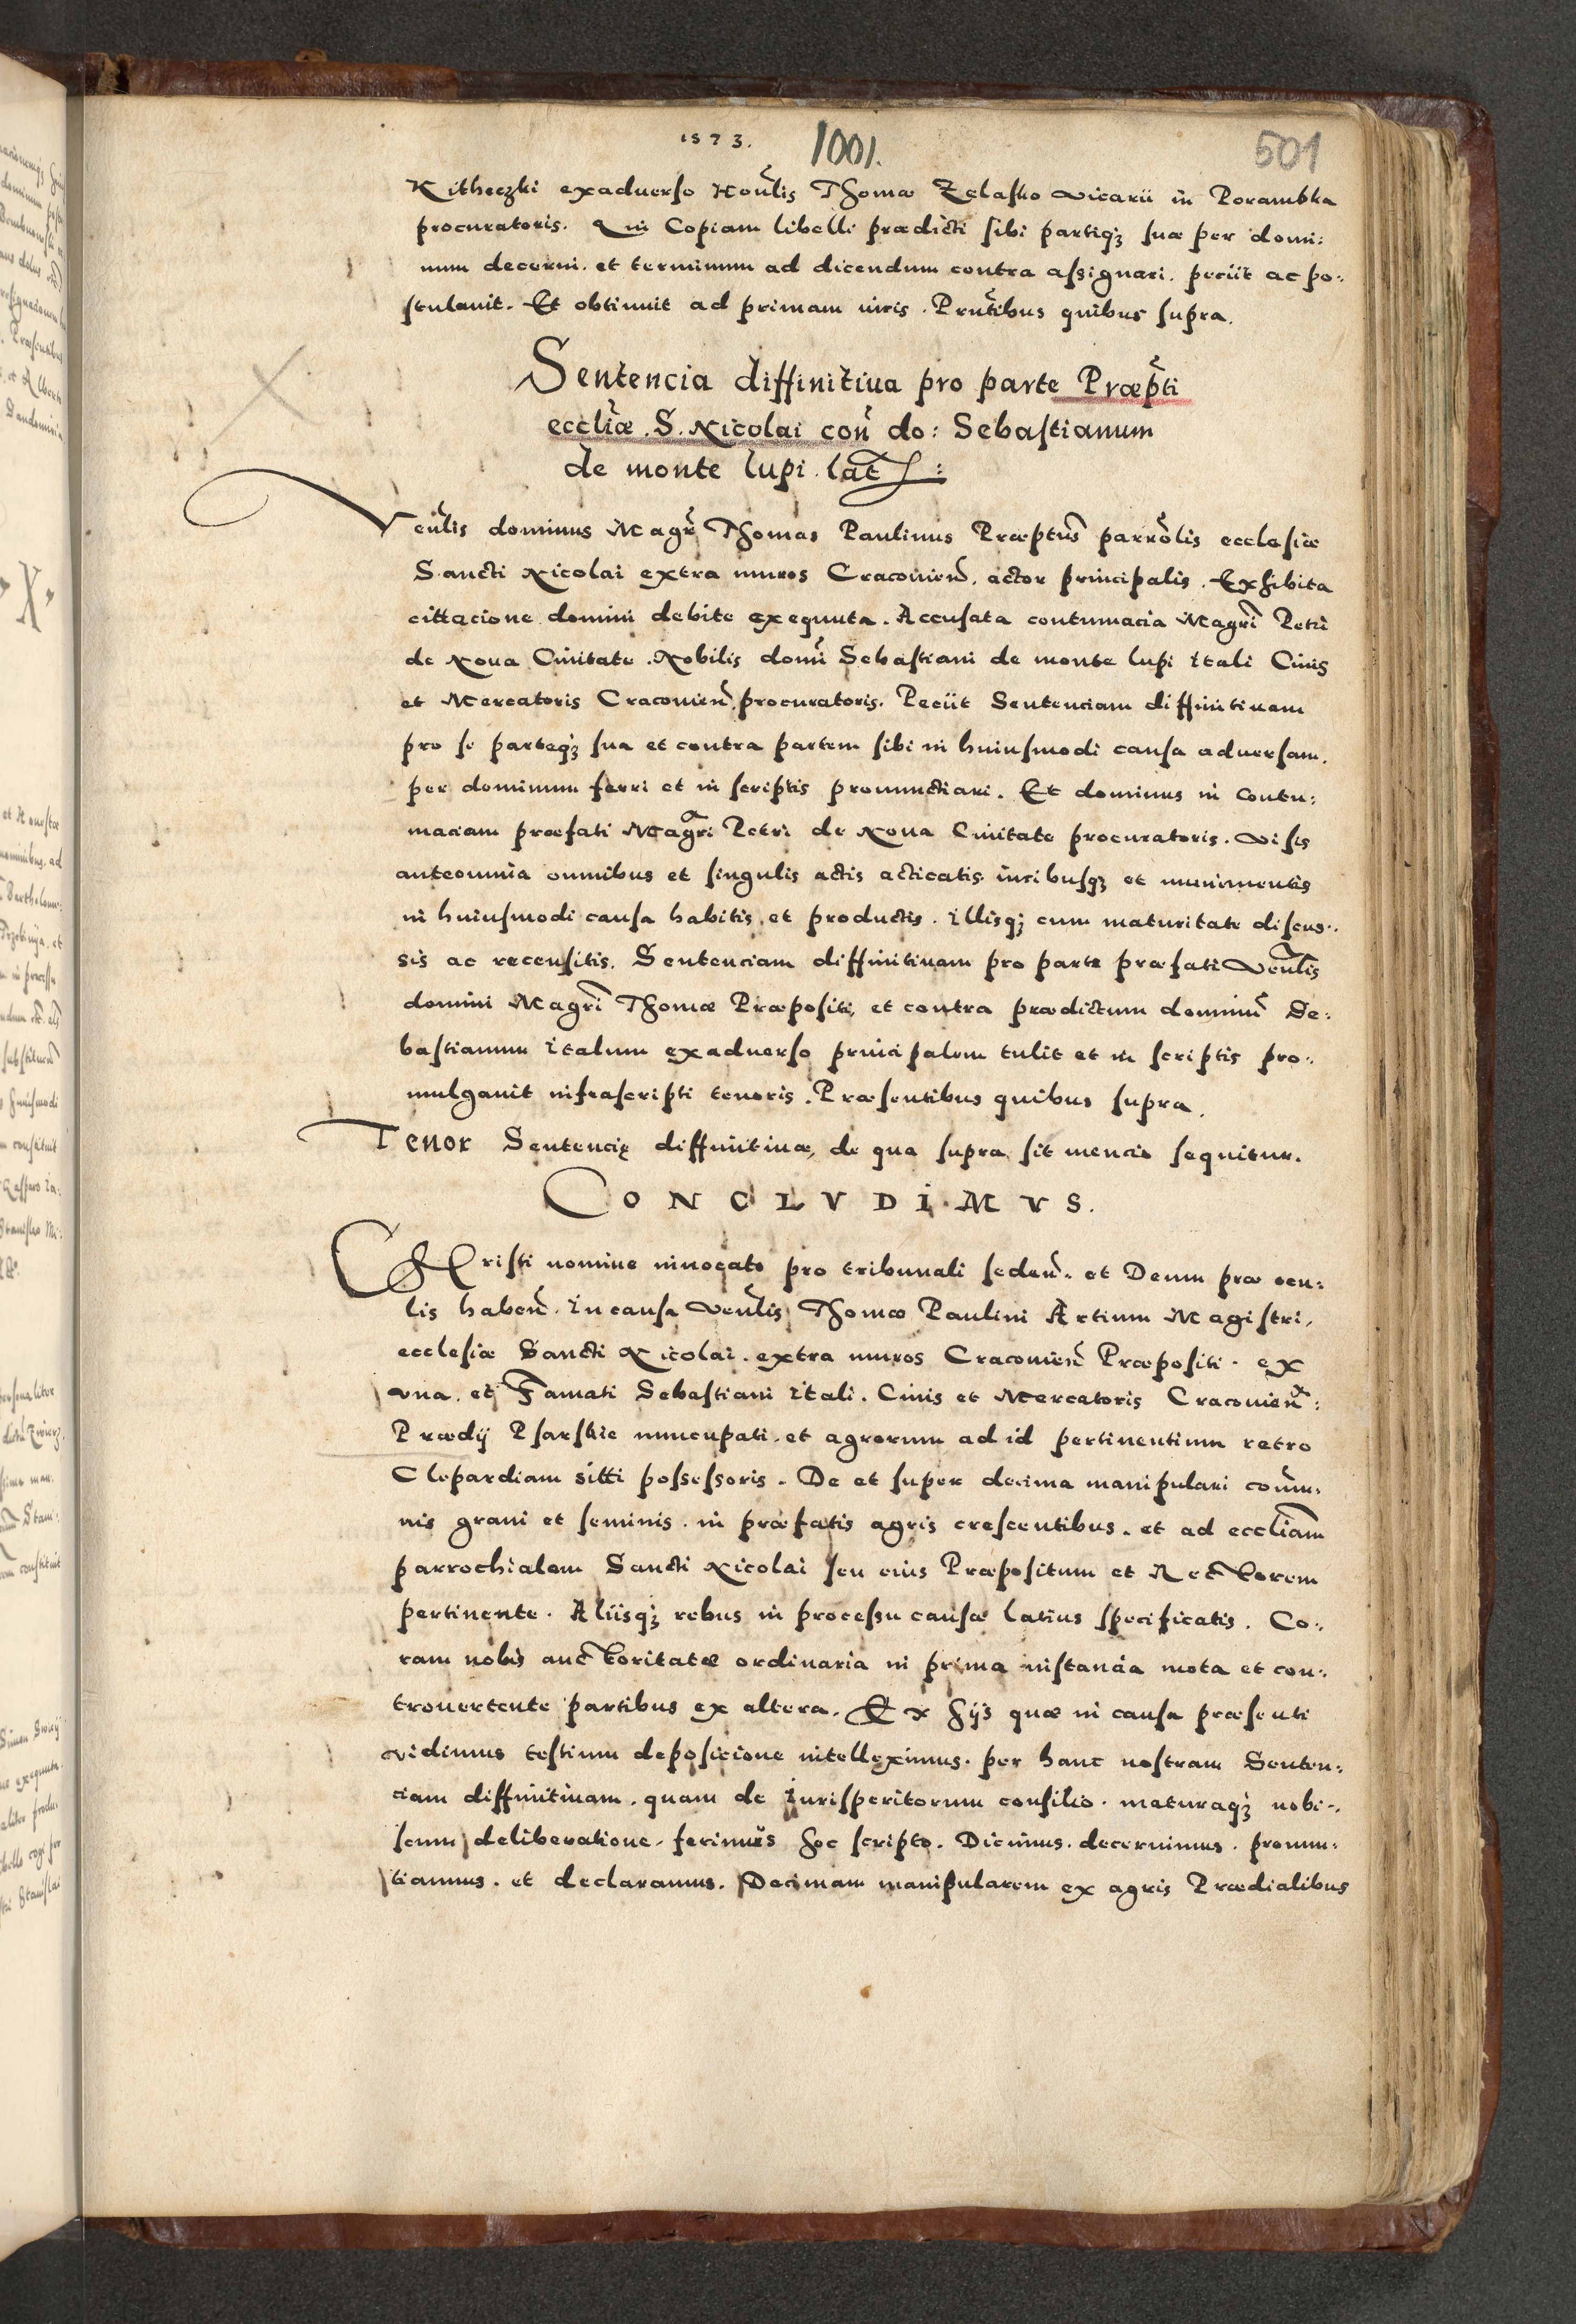 1573.
1001.
501
Kitheczki exaduerso Honlis Thomæ Zelasko vicarii in Porambka
procuratoris. Qui Copiam libelli prædicti sibi partiqȝ suæ per domi:
num decerni. et terminum ad dicendum contra assignari. peciit ac po:
stulauit. Et obtinuit ad primam iuris. Pñtibus quibus supra.
Sentencia diffinitiua pro parte Præpti
eccliæ. S. Nicolai con do: Sebastianum
de monte lupi. lat:
Venlis dominus Magr Thomas Paulinus Præptus parrolis ecclesiæ
Sancti Nicolai extra muros Cracouien. actor principalis. Exhibita
cittacione domini debite exequuta. Accusata contumacia Magri Petri
de Noua Ciuitate. Nobilis domi Sebastiani de monte lupi itali Ciuis
et Mercatoris Cracouien procuratoris. Peciit Sentenciam diffinitiuam
pro se parteqȝ sua et contra partem sibi in huiusmodi causa aduersam.
per dominum ferri et in scriptis pronunctiari. Et dominus in Contu:
maciam præfati Magri Petri de Noua Ciuitate procuratoris. visis
anteomnia omnibus et singulis actis acticatis iuribusqȝ et munimentis
in huiusmodi causa habitis. et productis. illisqȝ cum maturitate discus:
sis ac recensitis. Sentenciam diffinitiuam pro parte præfati Venlis
domini Magri Thomæ Præpositi, et contra prædictum dominu Se:
bastianum italum exaduerso principalem tulit et in scriptis pro:
mulgauit infrascripti tenoris. Præsentibus quibus supra.
Tenor Sentencię diffinitiuæ, de qua supra fit mencio sequitur.
CONCLVDIMVS.
CHristi nomine inuocato pro tribunali seden. et Deum præ ocu:
lis haben. in causa Venlis Thomæ Paulini Artium Magistri,
ecclesiæ Sancti Nicolai. extra muros Cracouien Præpositi. ex
vna. et Famati Sebastiani itali. Ciuis et Mercatoris Cracouien:
Prædij Psarskie nuncupati. et agrorum ad id pertinentium retro
Clepardiam sitti possessoris. De et super decima manipulari comu:
nis grani et seminis. in præfatis agris crescentibus. et ad eccliam
parrochialem Sancti Nicolai seu eius Præpositum et Rectorem
pertinente. Aliisqȝ rebus in processu causæ latius specificatis. Co:
ram nobis auctoritatæ ordinaria in prima instancia mota et con:
trouertente partibus ex altera. Ex hijs quæ in causa præsenti
vidimus testium deposicione intelleximus. per hanc nostram Senten:
ciam diffinitiuam. quam de iurisperitorum consilio. maturaqȝ nobi:
scum deliberatione. ferimus hoc scripto. Dicimus. decernimus. pronun:
tiamus. et declaramus. Decimam manipularem ex agris Prædialibus